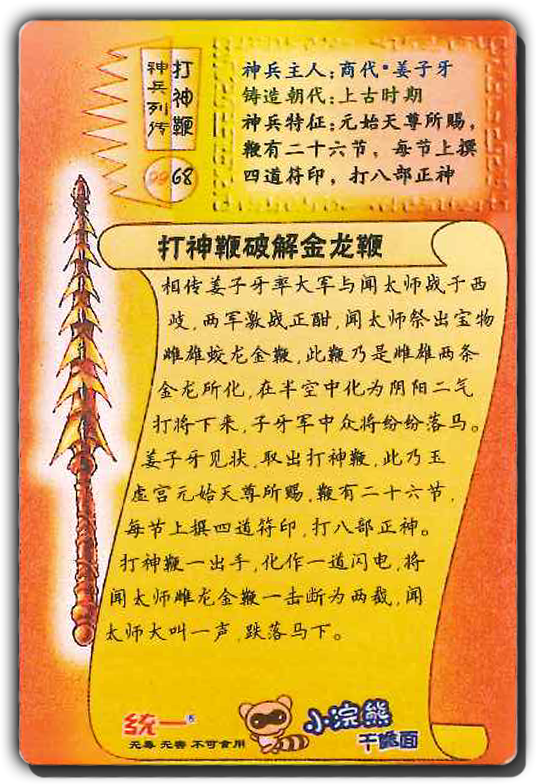 打神鞭
神兵列传
68
神兵主人:商代·姜子牙
铸造朝代:上古时期
神兵特征:元始天尊所赐,
鞭有二十六节，每节上撰
四道符印，打八部正神
打神鞭破解金龙鞭
相传姜子牙率大军与闻太师战于西
岐,两军激战正酣,闻太师祭出宝物
雌雄蛟龙金鞭,此鞭乃是雌雄两条
金龙所化,在半空中化为阴阳二气
打将下来,子牙军中众将纷纷落马。
姜子牙见状,取出打神鞭,此乃玉
虚宫元始天尊所赐,鞭有二十六节,
每节上撰四道符印,打八部正神。
打神鞭一出手,化作一道闪电,将
闻太师雌龙金鞭一击断为两截,闻
太师大叫一声,跌落马下。
统一®
无毒 无害 不可食用
小浣熊
干脆面